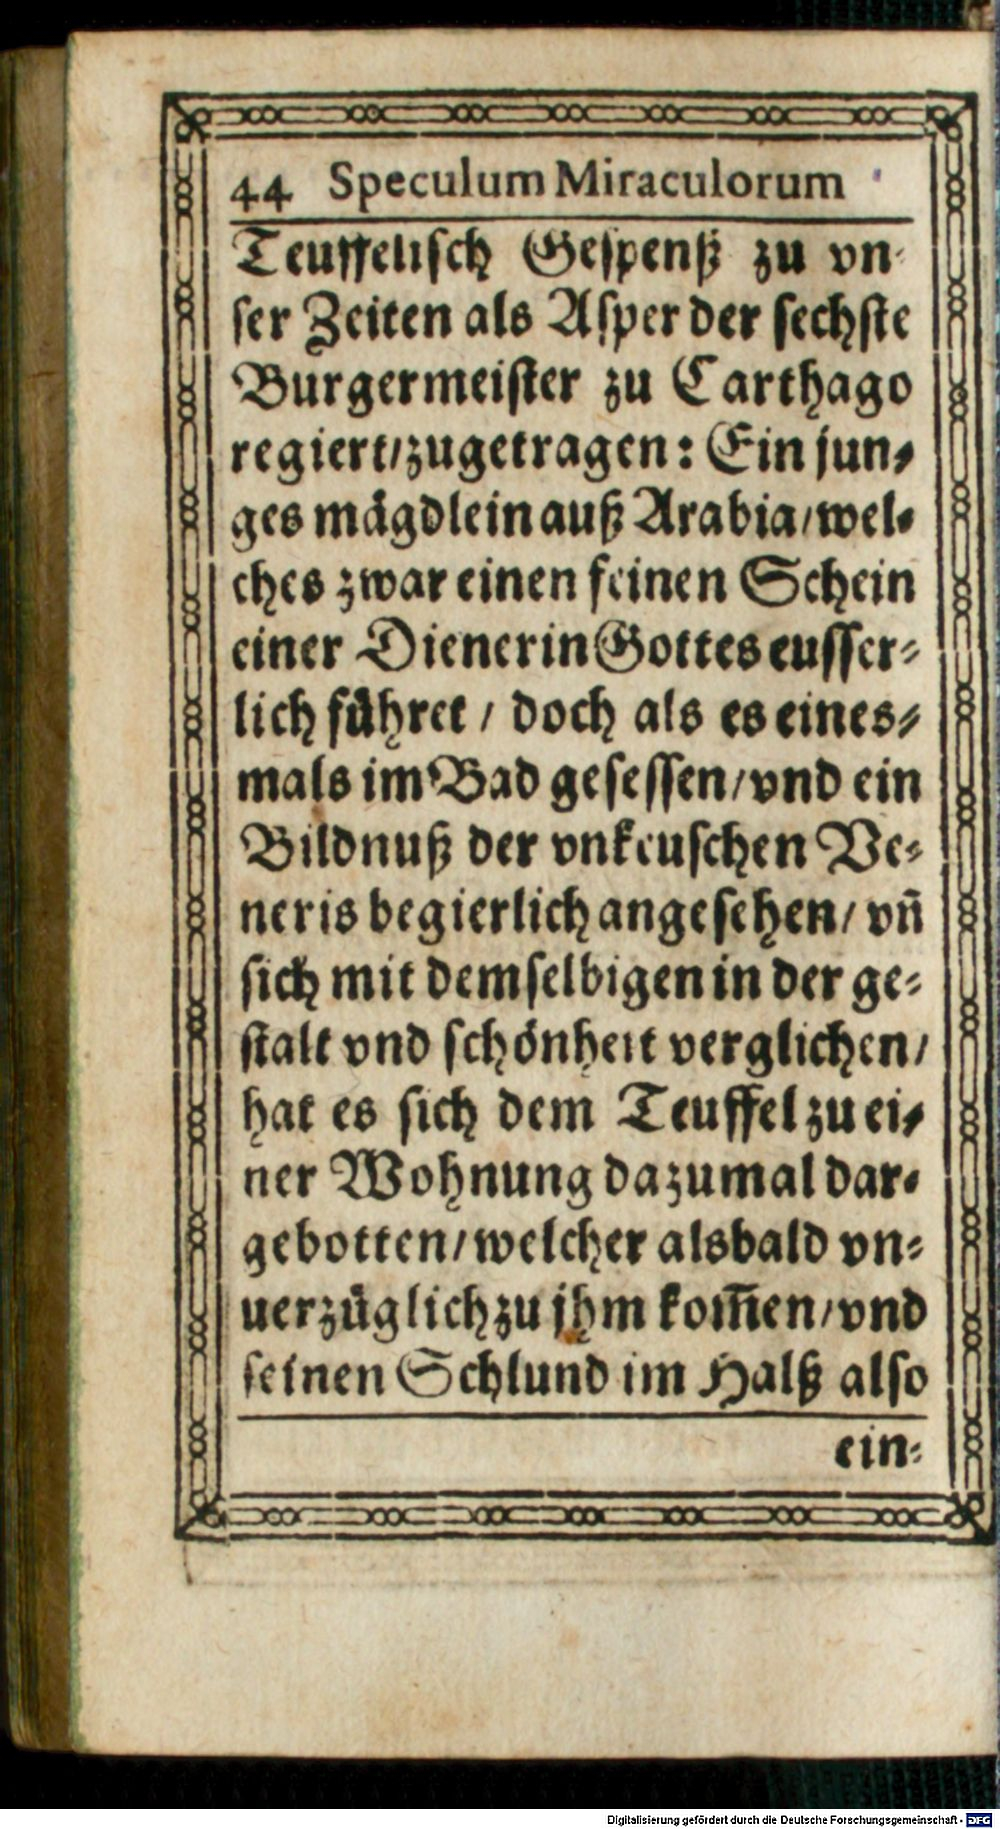 44 Speculum Miraculorum
Teuffelisch Gespenß zu vn-
ser Zeiten als Asper der sechste
Burgermeister zu Carthago
regiert/zugetragen: Ein jun-
ges mägdlein auß Arabia/wel-
ches zwar einen feinen Schein
einer Dienerin Gottes eusser-
lich führet / doch als es eines-
mals im Bad gesessen/vnd ein
Bildnuß der vnkeuschen Ve-
neris begierlich angesehen/ vñ
sich mit demselbigen in der ge-
stalt vnd schönheit verglichen/
hat es sich dem Teuffel zu ei-
ner Wohnung dazumal dar-
gebotten/welcher alsbald vn-
uerzüglich zu jhm kom̄en/vnd
seinen Schlund im Halß also
ein-
Digitalisierung gefördert durch die Deutsche Forschungsgemeinschaft - DFG